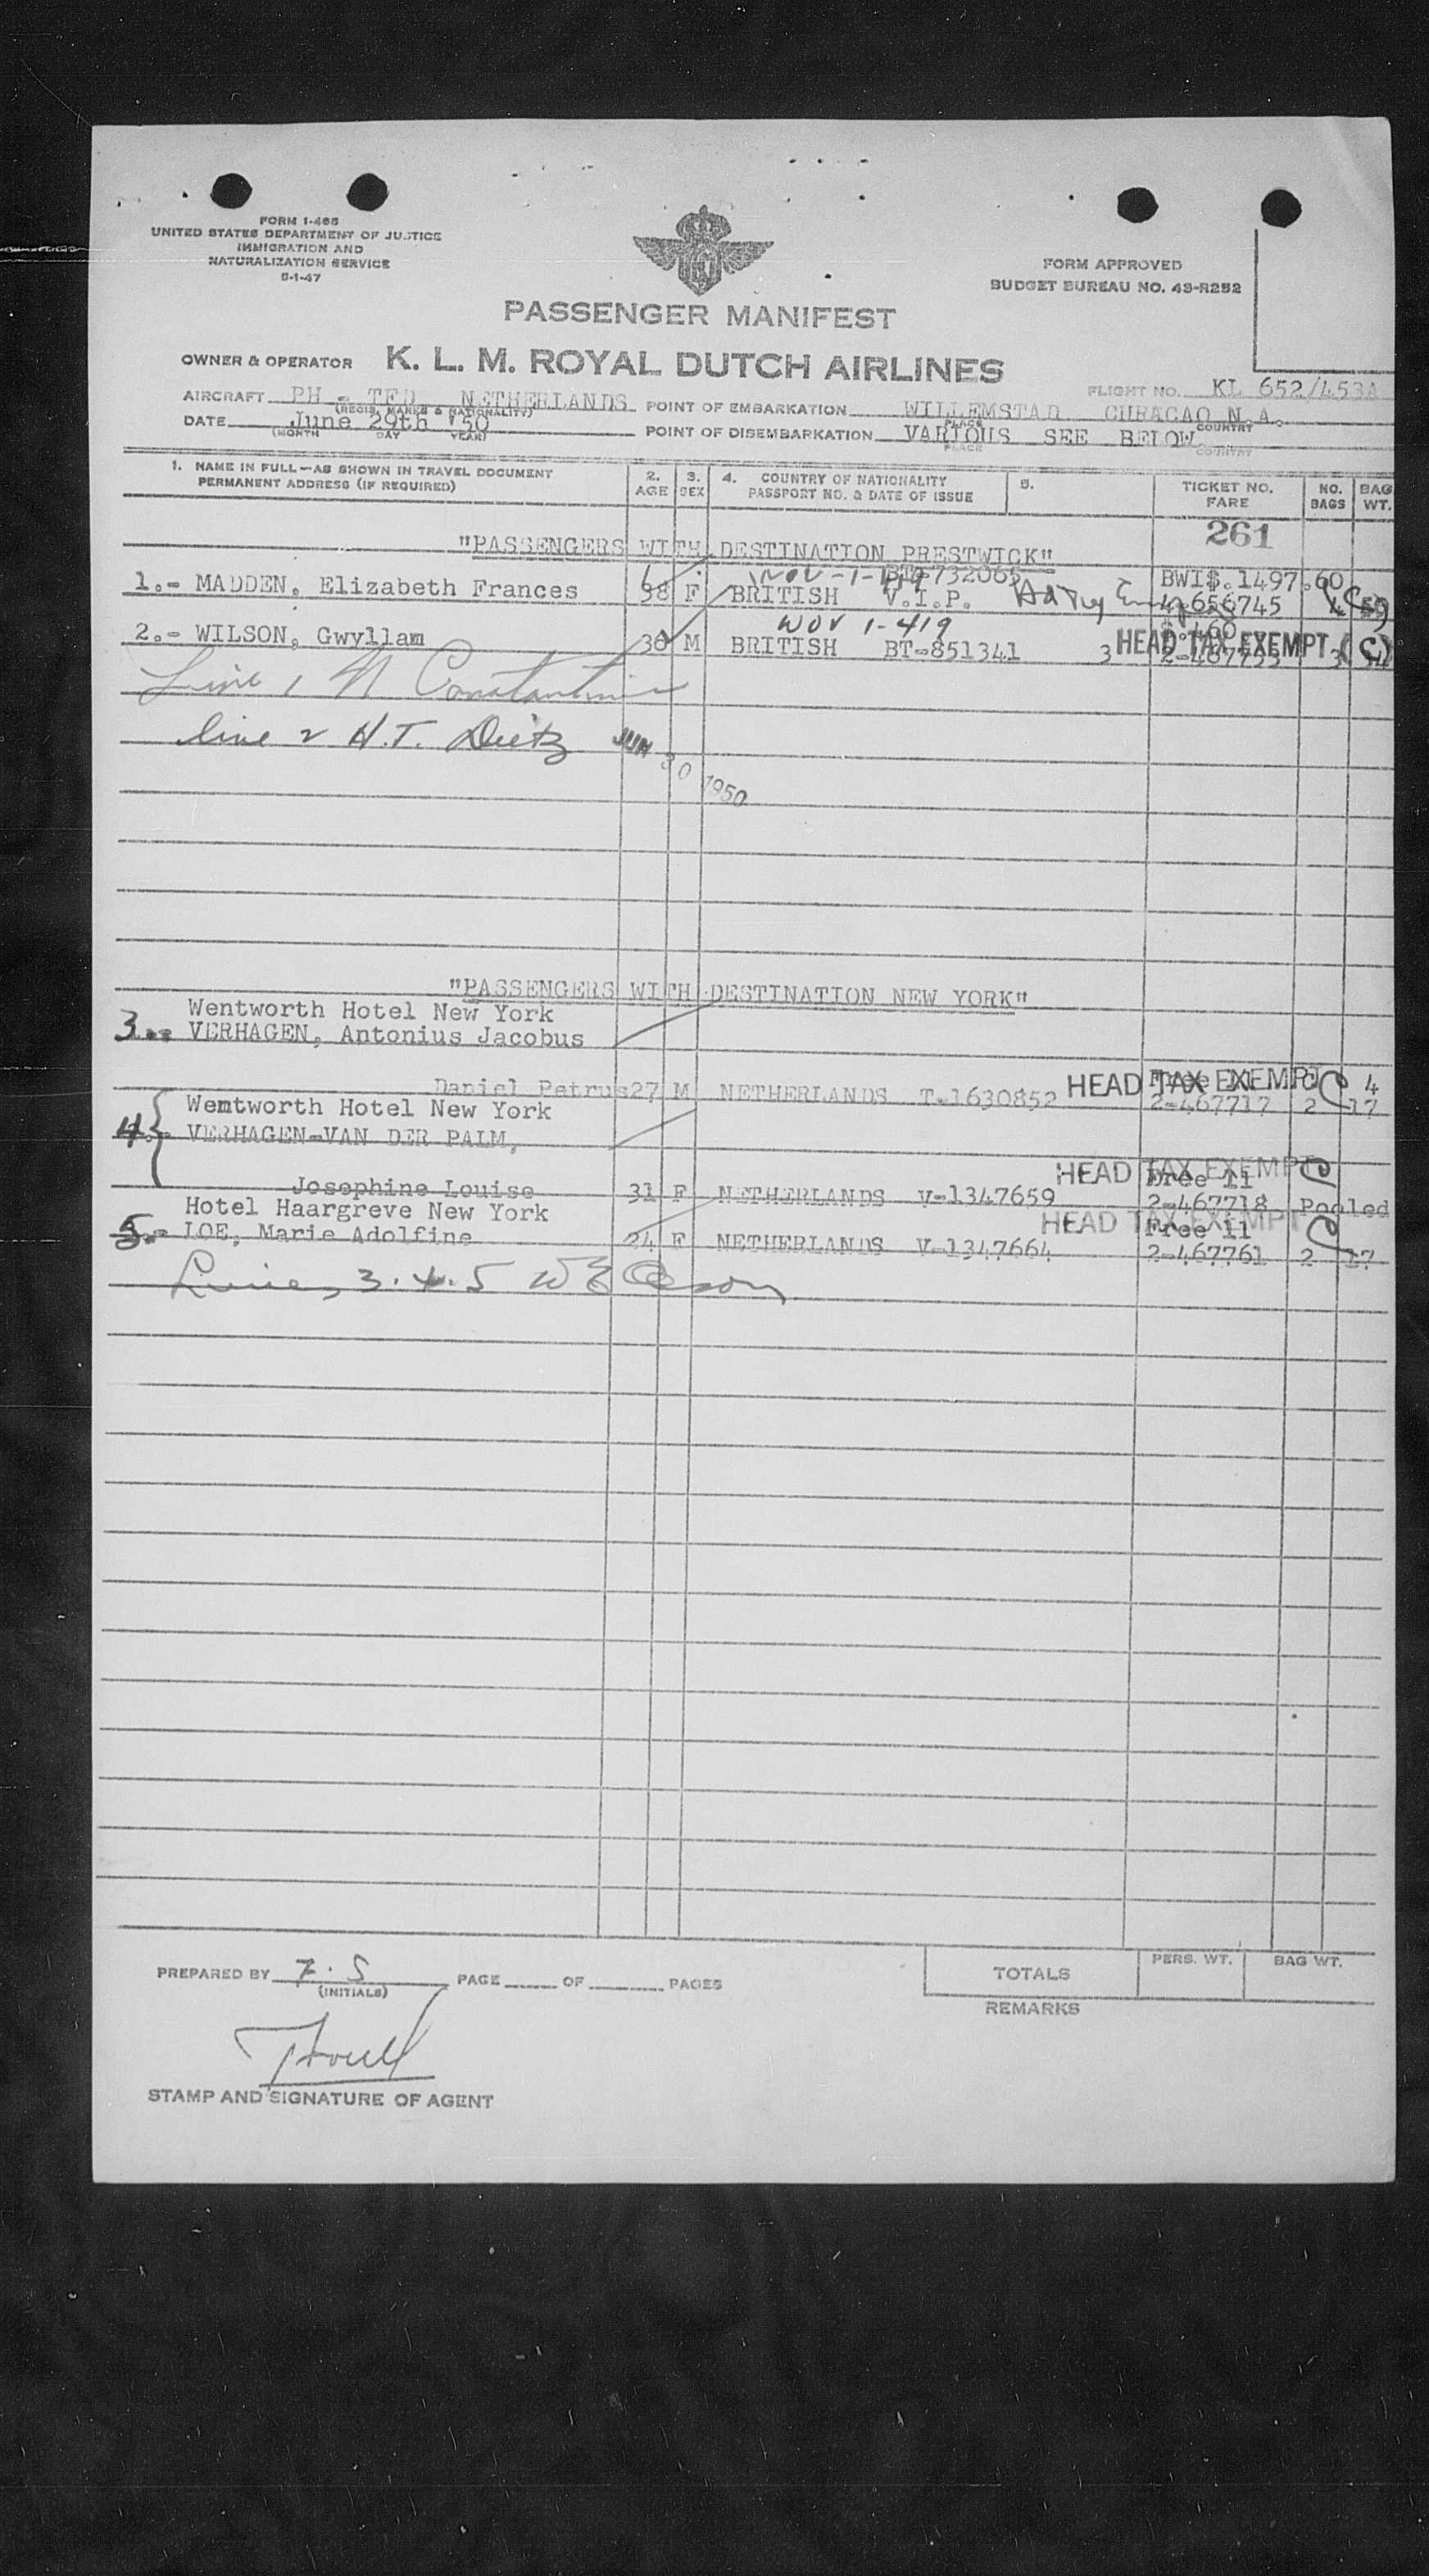 FORM I-466
UNITED STATES DEPARTMENT OF JUSTICE
IMMIGRATION AND
NATURALIZATION SERVICE
5-1-47
FORM APPROVED
BUDGET BUREAU NO. 43-R252
PASSENGER MANIFEST
OWNER & OPERATOR K. L. M. ROYAL DUTCH AIRLINES
AIRCRAFT PH - TED NETHERLANDS FLIGHT NO. KL 652/453A
(REGIS. MARKS & NATIONALITY) POINT OF EMBARKATION WILLEMSTAD CURACAO N.A.
PLACE COUNTRY
DATE June 29th '50 POINT OF DISEMBARKATION VARIOUS SEE BELOW.
(MONTH DAY YEAR) PLACE COUNTRY
1. NAME IN FULL—AS SHOWN IN TRAVEL DOCUMENT 2. 3. 4. COUNTRY OF NATIONALITY 5. TICKET NO. NO. BAG
PERMANENT ADDRESS (IF REQUIRED) AGE SEX PASSPORT NO. & DATE OF ISSUE FARE BAGS WT.
261
"PASSENGERS WITH DESTINATION PRESTWICK"
BT-732065 BWI$.1497.60
1.- MADDEN, Elizabeth Frances 38 F BRITISH V.I.P. 4-656745 4
NOV 1-419 $.460
2.- WILSON, Gwyllam 30 M BRITISH BT-851341 3 HEAD TAX EXEMPT 2-467755 3
Line 1 N Constantine
line 2 H.T. Dietz JUN 30 1950
"PASSENGERS WITH DESTINATION NEW YORK"
Wentworth Hotel New York
3.- VERHAGEN, Antonius Jacobus
HEAD TAX EXEMPT Free 4
Daniel Petrus 27 M NETHERLANDS T-1630852 2-467717 2 17
Wemtworth Hotel New York
4.- VERHAGEN-VAN DER PALM,
HEAD TAX EXEMPT Free 11
Josephine Louise 31 F NETHERLANDS V-1347659 2-467718 Pooled
Hotel Haargreve New York HEAD TAX EXEMPT Free 11
5.- LOE, Marie Adolfine 24 F NETHERLANDS V-1347664 2-467761 2 17
Lines 3.4.5
PREPARED BY F.S PAGE OF PAGES
(INITIALS)
TOTALS PERS. WT. BAG WT.
REMARKS
STAMP AND SIGNATURE OF AGENT